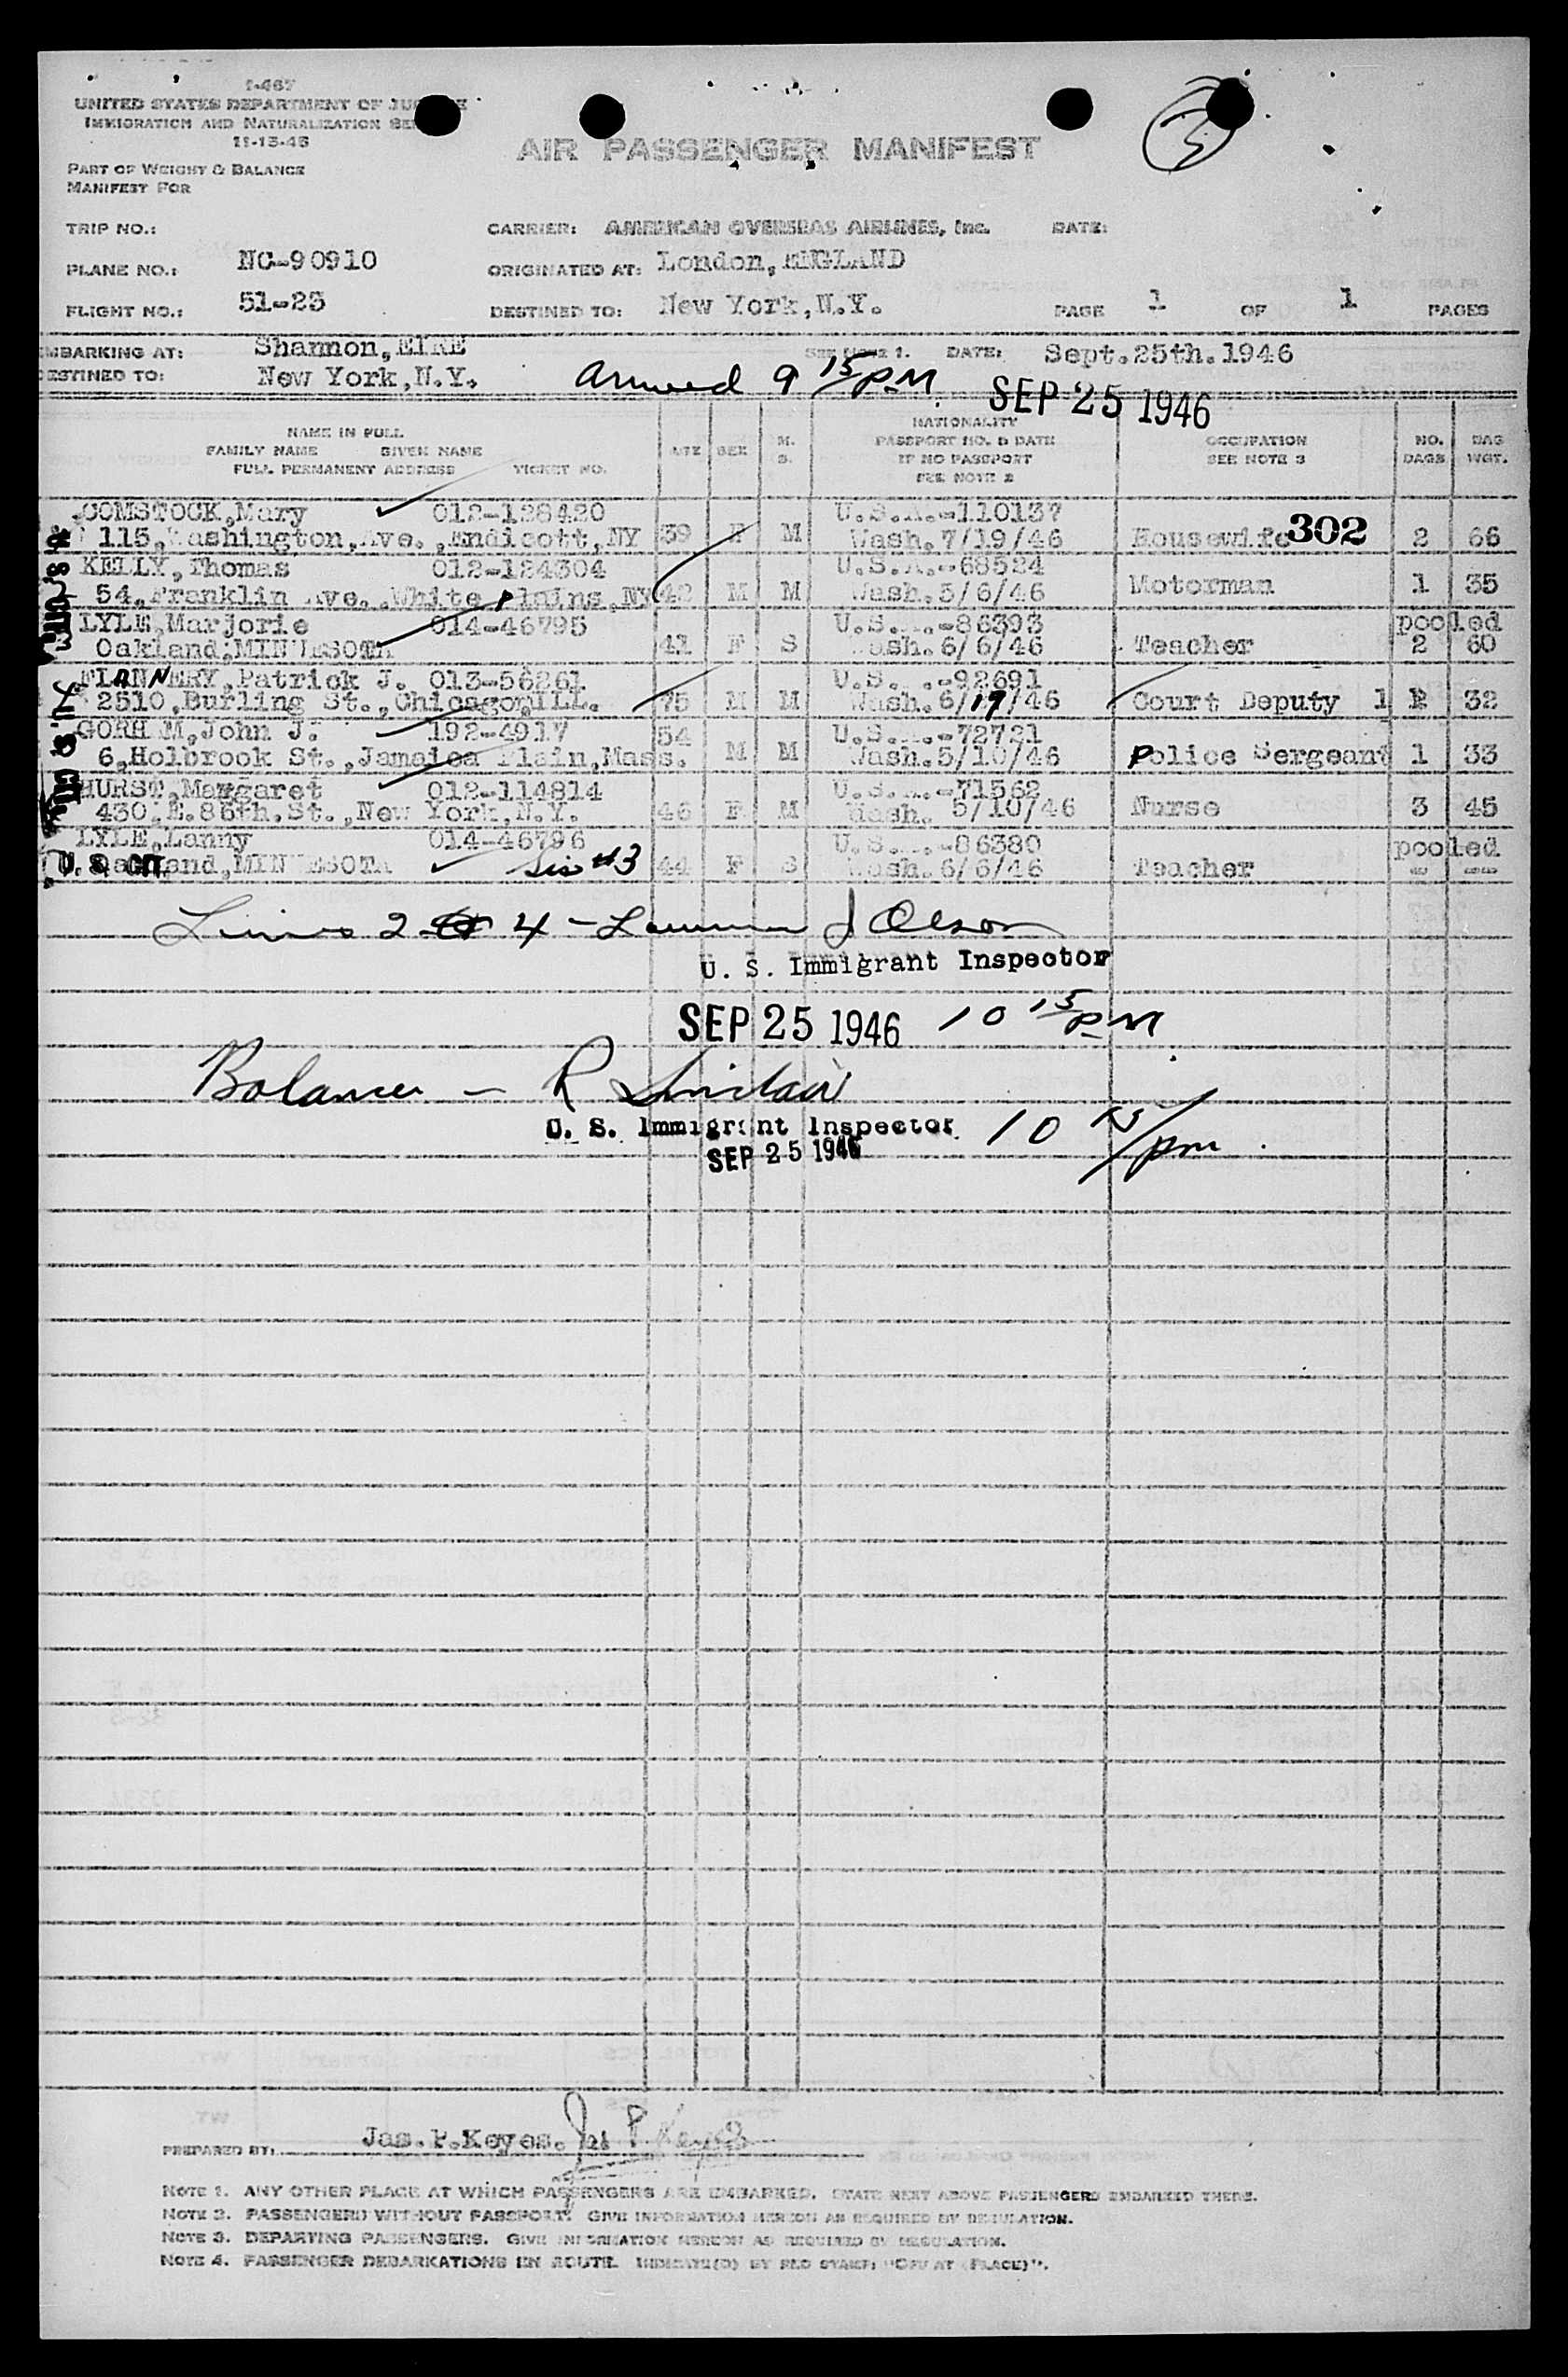 I-467
UNITED STATES DEPARTMENT OF JUSTICE
IMMIGRATION AND NATURALIZATION SER
11-15-45
AIR PASSENGER MANIFEST
PART OF WEIGHT & BALANCE
MANIFEST FOR
TRIP NO.: CARRIER: AMERICAN OVERSEAS AIRLINES, Inc. DATE:
PLANE NO.: NC-90910 ORIGINATED AT: London, ENGLAND
FLIGHT NO.: 51-25 DESTINED TO: New York, N.Y. PAGE 1 OF 1 PAGES
EMBARKING AT: Shannon, EIRE SEE NOTE 1. DATE: Sept. 25th. 1946
DESTINED TO: New York, N.Y. arrived 9 15/PM SEP 25 1946
NAME IN FULL
FAMILY NAME GIVEN NAME
FULL PERMANENT ADDRESS TICKET NO.
AGE SEX M. S.
NATIONALITY
PASSPORT NO. & DATE
IF NO PASSPORT
SEE NOTE 2
OCCUPATION
SEE NOTE 3
NO. BAGS
BAG WGT.
COMSTOCK, Mary 012-128420 U.S.A.-110137
115, Washington, Ave., Endicott, NY 39 F M Wash. 7/19/46 Housewife 302 2 66
KELLY, Thomas 012-124304 U.S.A.-68524
54, Franklin Ave., White Plains, NY 42 M M Wash. 5/6/46 Motorman 1 35
LYLE, Marjorie 014-46795 U.S.A.-86393 pooled
Oakland, MINNESOTA 41 F S Wash. 6/6/46 Teacher 2 60
FLANNERY, Patrick J. 013-56261 U.S.A.-92691
2510, Burling St., Chicago, ILL. 75 M M Wash. 6/19/46 Court Deputy 1 32
GORHAM, John J. 192-4917 54 U.S.A.-72721
6, Holbrook St., Jamaica Plain, Mass. M M Wash. 5/10/46 Police Sergeant 1 33
HURST, Margaret 012-114814 U.S.A.-71562
430, E. 86th. St., New York, N.Y. 46 F M Wash. 5/10/46 Nurse 3 45
LYLE, Lanny 014-46796 U.S.A.-86380 pooled
U.S. CIT. Oakland, MINNESOTA Sis #3 44 F S Wash. 6/6/46 Teacher
Lines 2 4 - J Olson
U. S. Immigrant Inspector
SEP 25 1946 10 15/PM
Balance - R Sinclair
U. S. Immigrant Inspector 10 15/pm
SEP 25 1946
PREPARED BY: Jas. P. Keyes. Jas P. Keyes
NOTE 1. ANY OTHER PLACE AT WHICH PASSENGERS ARE EMBARKED. STATE NEXT ABOVE PASSENGERS EMBARKED THERE.
NOTE 2. PASSENGERS WITHOUT PASSPORT. GIVE INFORMATION HEREON AS REQUIRED BY REGULATION.
NOTE 3. DEPARTING PASSENGERS. GIVE INFORMATION HEREON AS REQUIRED BY REGULATION.
NOTE 4. PASSENGER DEBARKATIONS EN ROUTE. INDICATE(D) BY RED STAMP: "OFF AT (PLACE)".